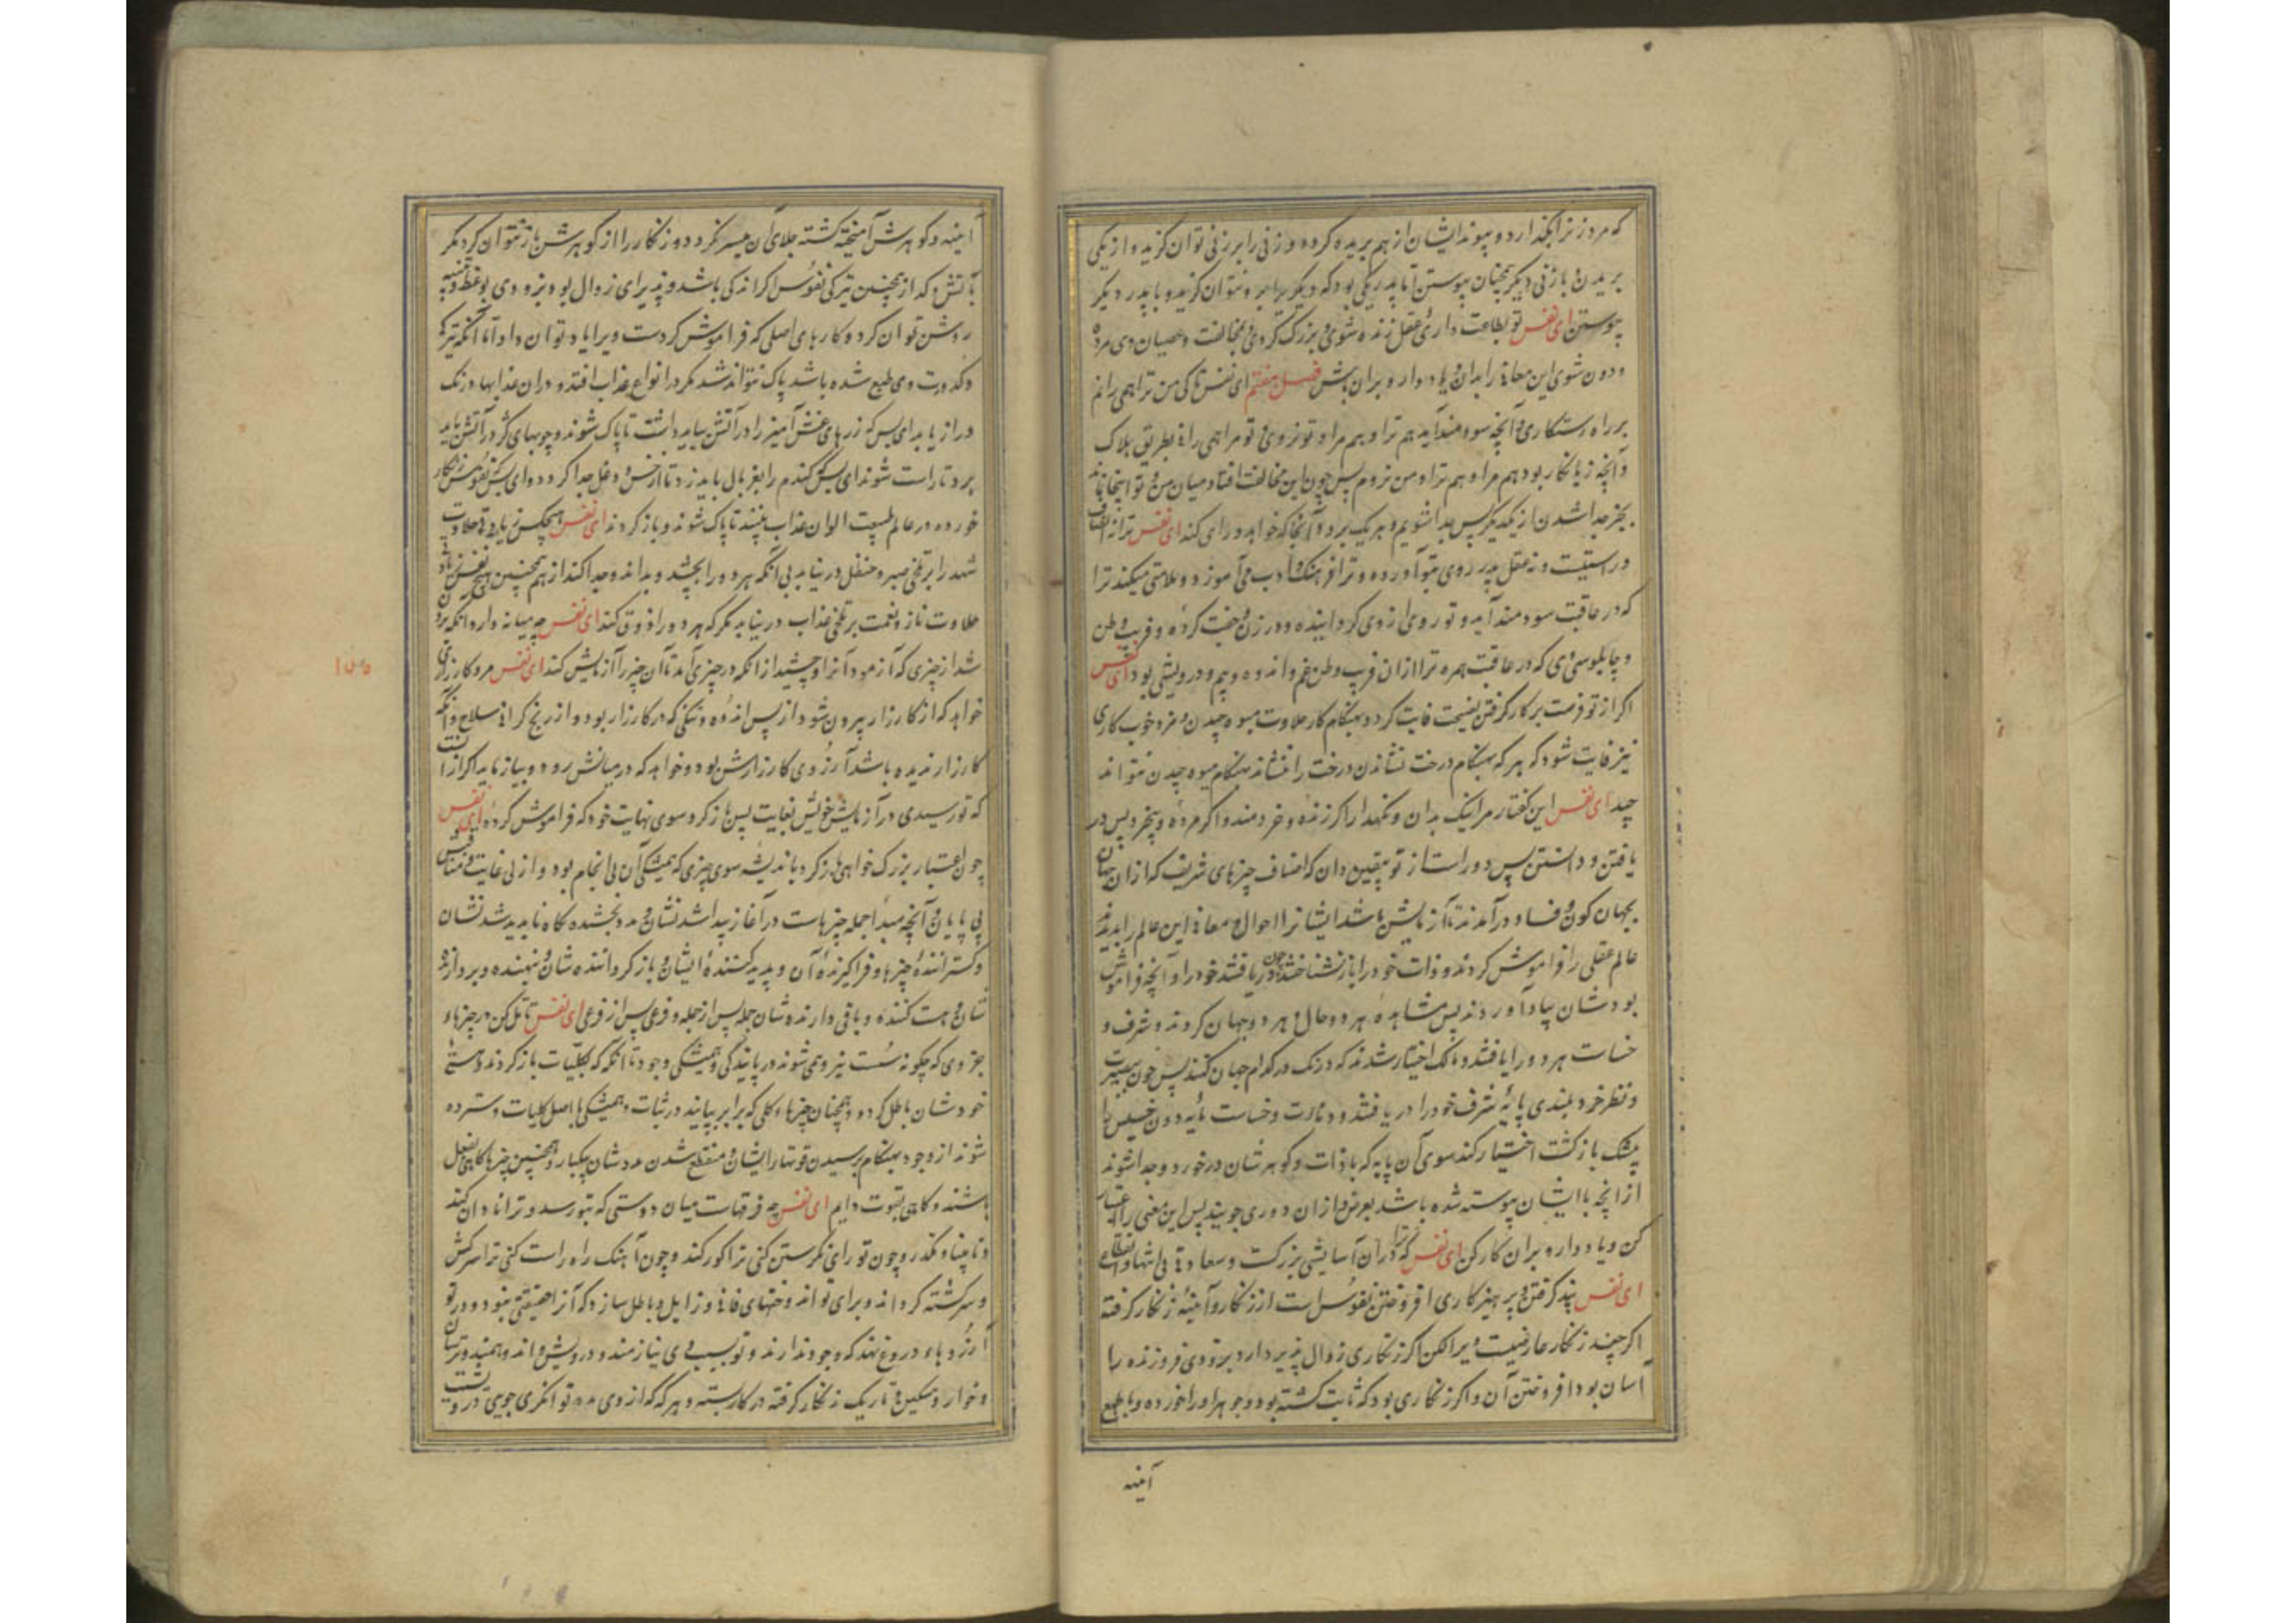 که مرد زنرا بگذارد و پیوند ایشان از هم بریده کرده و زنی را بر زنی توان گزید و از یکی
بریدن با زنی دیگر همچنان پیوستن اما پدر یکی بود که دیگر برابر و نتوان گزید و با پدر دیگر
پیوستن ای نفس تو بطاعت داری عقل زنده شوی و بزرگ گردی و بمخالفت و عصیان وی مرده
و دون شوی این معانی را بدان و یاد دار و بران باش فصل هفتم ای نفس تا کی من ترا همی رانم
بر راه رستگاری و آنچه سودمند آید هم ترا و هم مرا و تو نروی و تو مرا همی رانی بطریق هلاک
و آنچه زیانکار بود هم مرا و هم ترا و من نروم پس چون این مخالفت افتاد میان من و تو اینجا نماند
بجز جدا شدن از یکدیگر پس جدا شویم و هر یک برود آنجا که خواهد و رای کند ای نفس ترا نه انصاف
و راستیست و نه عقل پدر روی بتو آورده و ترا فرهنگ و ادب می آموزد و علامتی میکند ترا
که در عاقبت سودمند آید و تو روی از وی گردانیده و در زن و جفت کرده و فریب وطن
و چاپلوسی وی که در عاقبت بهره ترا از ان فریب وطن غم و اندوه و بیم و درویشی بود ای نفس
اگر از تو فرصت بر کار گرفتن نصیحت فایت گردد بهنگام کار حلاوت میوه چیدن و مزه خوب کاری
نیز فایت شود که هر که بهنگام درخت نشاندن درخت را ننشاند بهنگام میوه چیدن نتواند
چید ای نفس این گفتار مرا نیک بدان و نگهدار اگر زنده و خردمند و اگر مرده و بیخرد پس در
یافتن و دانستن پس دور است از تو بیقین دان که اصناف چیزهای شریف که از ان جهان
بجهان کون و فساد در آمدند تا آزمایش باشد ایشانرا احوال و معانی این عالم را بدیدند
عالم عقلی را فراموش کردند و ذات خود را باز نشناختند چون دریافتند خود را و آنچه فراموش
بود شان بیاد آوردند پس مشاهده هر دو حال و هر دو جهان کردند و شرف و
خساست هر دو را یافتند و مالک اختیار شدند که درنگ در کدام جهان کنند پس چون بصیرت
و نظر خرد بلندی پایه شرف خود را دریافتند و دنائت و خساست پایه دون خسیس را
بیشک بازگشت اختیار کند سوی آن پایه که با ذات و گوهر شان در خورد و جدا شوند
از انچه با ایشان پیوسته شده باشد بعرض و از ان دوری جویند پس این معنی را اعتبار
کن و یاد دار و بران کار کن ای نفس که ترا در ان آسایشی بزرگست و سعادتی بی انتها و انقطاع
ای نفس پند گرفتن و پرهیزکاری افروختن نفوس است از زنگار و آینه زنگار گرفته
اگر چند زنگار عارضیست ویرا لکن اگر زنگاری زوال پذیر دارد بزودی فروزنده را
آسان بود افروختن آن و اگر زنگاری بود که ثابت گشته بود و جوهر او را خورده و با طبع
آینه
آینه و گوهرش آمیخته گشته جلای آن میسر نگردد و زنگار را از گوهرش باز نتوان کرد مگر
بآتش که از همچنین تیرگی نفوس اگر اندکی باشد و پذیرای زوال بود بزودی بوعظ و تنبیه
روشن توان کرد و کارهای اصلی که فراموش کردست ویرا یاد توان داد اما آنکه تیرگی
و کدورت وی طبع شده باشد پاک نتواند شد مگر در انواع عذاب افتد و دران عذابها درنگ
دراز یابد ای پس که زرهای غش آمیز را در آتش بباید داشت تا پاک شوند و چوبهای کژ در آتش باید
برد تا راست شوند ای پس گندم را بغربال باید زد تا از خس و دغل جدا گردد و ای پس نفوس زنگار
خورده در عالم طبیعت الوان عذاب بینند تا پاک شوند و باز گردند ای نفس هیچکس زیادتی حلاوت
شهد را بر تلخی صبر و حنظل در نیابد بی آنکه هر دو را بچشد و بداند و جدا کند از هم همچنین هیچ نفس زیادتی
حلاوت ناز و نعمت بر تلخی عذاب در نیابد مگر که هر دو را ذوق کند ای نفس چه میانه دارد آنکه برون
شد از چیزی که آزمود آنرا و چشید از آنکه در چیزی آمد تا آن چیز را آزمایش کند ای نفس مرد کارزاری
خواهد که از کارزار بیرون شود از پس اندوه و تنگی که در کارزار بود و از رنج گرانی سلاح و آنکه
کارزار ندیده باشد آرزوی کارزارش بود و خواهد که در میانش رود و بیازماید اگر از انست
که تو رسیدی در آزمایش خویش بغایت پس باز گرد سوی نهایت خود که فراموش کرده ای نفس
چون اعتبار بزرگ خواهی باز گرد باندیشه سوی چیزی که همیشگی آن بی انجام بود و از بی غایت و متناهی
بی پایان و آنچه مبدا جمله چیزهاست در آغاز پیدا شد نشان و مدد بخشنده گاه ناپدید شد نشان
و گستراننده چیزها و فراگیرنده آن و پدید کننده ایشان و باز گرداننده شان و نهنده و بردارنده
شان و هست کننده و باقی دارنده شان جمله پس از جمله و فرعی پس از فرعی ای نفس تامل کن در چیزهاء
جزوی که چگونه سست نیرو می شوند در پایندگی و همیشگی وجود تا آنکه که بکلیات باز گردند و هستی
خود شان باطل گردد و همچنان چیزهاء کلی که برابر بپایند در ثبات و همیشگی با اصل کلیات و سترده
شوند از وجود بهنگام برسیدن قوتها را ایشان و منقطع شدن مدد شان بیکبار و همچنین چیزها گاهی بفعل
باشند و گاهی بقوت دایم ای نفس چه فرقیست میان دوستی که بتو رسد و ترا نادان کند
و نابینا و گذرد و چون تو رای نگرستن کنی ترا کور کند و چون آهنگ راه راست کنی ترا سرکش
و سرگشته گرداند و برای تو اندوختهای فانی و زایل و باطل سازد که آنرا حقیقتی نبود و در تو
آرزوهاء دروغ نهند که وجود ندارند و تو بسبب وی نیازمند و درویش و اندوهمند و ترسان
و خوار و مسکین و تاریک زنگار گرفته در کار بسته و هر گه که از وی مدد توانگری جویی درویشت